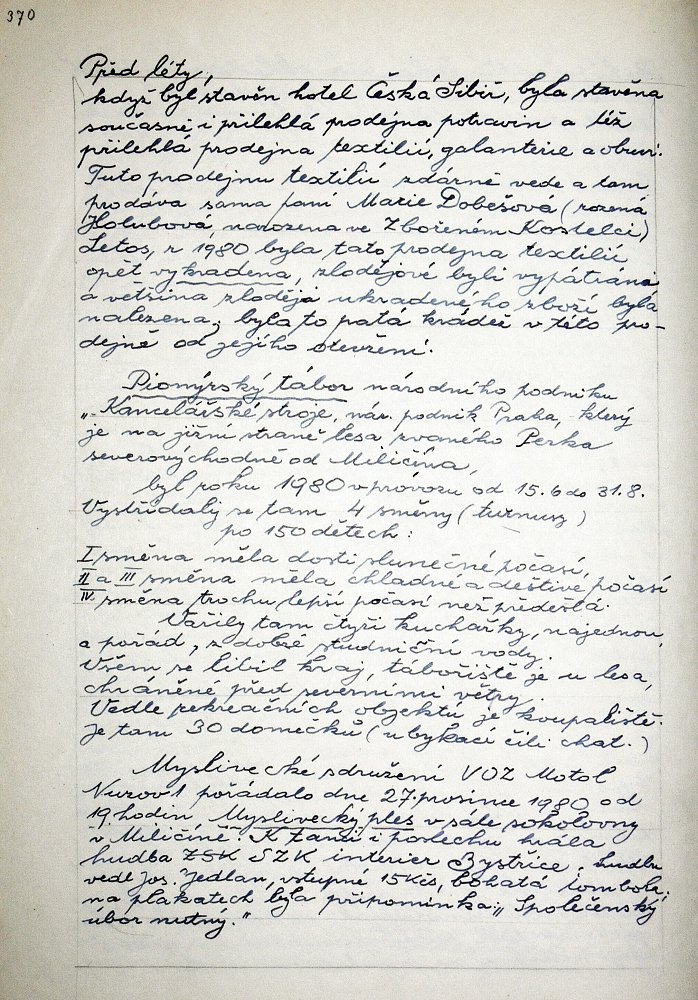 370
Před léty,
když byl stavěn hotel Česká Sibiř, byla stavěna
současně i přilehlá prodejna potravin a též
přilehlá prodejna textilií, galanterie a obuvi.
Tuto prodejnu textilií zdárně vede a tam
prodává sama paní Marie Dobešová (rozená
Holubová, narozena ve Zbořeném Kostelci)
Letos, r 1980 byla tato prodejna textilií
opět vykradena, zlodějové byli vypátráni
a většina zloději ukradeného zboží byla
nalezena; byla to pátá krádež v této pro-
dejně od jejího otevření.
Pionýrský tábor národního podniku
„Kancelářské stroje, nár. podnik Praha, který
je na jižní straně lesa zvaného Perka
severovýchodně od Miličína,
byl roku 1980 v provozu od 15.6 do 31.8.
Vystřídaly se tam 4 směny (turnusy)
po 150 dětech:
I směna měla dosti slunečné počasí,
II a III směna měla chladné a deštivé počasí
IV. směna trochu lepší počasí než předešlá.
Vařily tam čtyři kuchařky, najednou,
a pořád, z dobré studniční vody.
Všem se líbil kraj, tábořiště je u lesa,
chráněné před severními větry.
Vedle rekreačních objektů je koupaliště.
Je tam 30 domečků (ubykací čili chat.)
Myslivecké sdružení VOZ Motol
Nuzov 1 pořádalo dne 27. prosince 1980 od
19. hodin Myslivecký ples v sále sokolovny
v Miličíně. K tanci i poslechu hrála
hudba ZSK SZK interier Bystřice. hudbu
vede Jos. Jedlan, vstupné 15 Kčs, bohatá tombola;
na plakatech byla připomínka: „Společenský
úbor nutný."